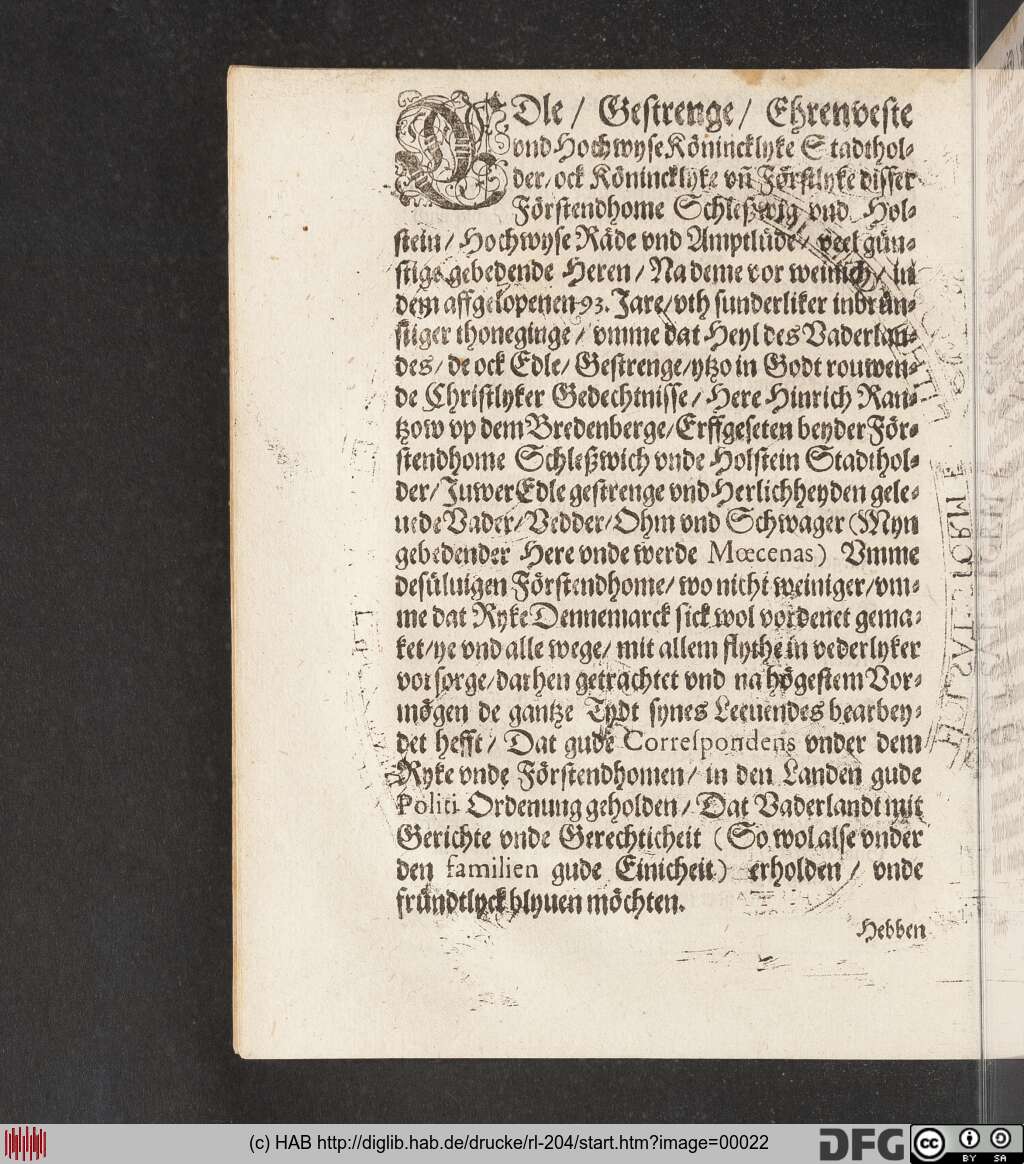 EDle / Gestrenge / Ehrenveste
vnd Hochwyse Könincklyke Stadthol⸗
der / ock Könincklyke vñ Förstlyke disser
Förstendhome Schleßwig vnd Hol⸗
stein / Hochwyse Räde vnd Amptlüde / veel gün⸗
stige gebedende Heren / Na deme vor weinich / in
dem affgelopenen 93. Jare / vth sunderliker inbrün⸗
stiger thoneginge / vmme dat Heyl des Vaderlan⸗
des / de ock Edle / Gestrenge / ytzo in Godt rouwen⸗
de Christlyker Gedechtnisse / Here Hinrich Ran⸗
tzow vp dem Bredenberge / Erffgeseten beyder För⸗
stendhome Schleßwich vnde Holstein Stadthol⸗
der / Juwer Edle gestrenge vnd Herlichheyden gele⸗
uede Vader / Vedder / Ohm vnd Schwager (Myn
gebedender Here vnde werde Mœcenas) Vmme
desüluigen Förstendhome / wo nicht weiniger / vm⸗
me dat Ryke Dennemarck sick wol vordenet gema⸗
ket / ye vnd alle wege / mit allem flythe in vederlyker
vorsorge / darhen getrachtet vnd na högestem Vor⸗
mögen de gantze Tydt synes Leeuendes bearbey⸗
det hefft / Dat gude Correſpondens vnder dem
Ryke vnde Förstendhomen / in den Landen gude
Politi Ordenung geholden / Dat Vaderlandt mit
Gerichte vnde Gerechticheit (So wol alse vnder
den familien gude Einicheit) erholden / vnde
fründtlyck blyuen möchten.
Hebben
(c) HAB http://diglib.hab.de/drucke/rl-204/start.htm?image=00022
DFG
cc BY SA